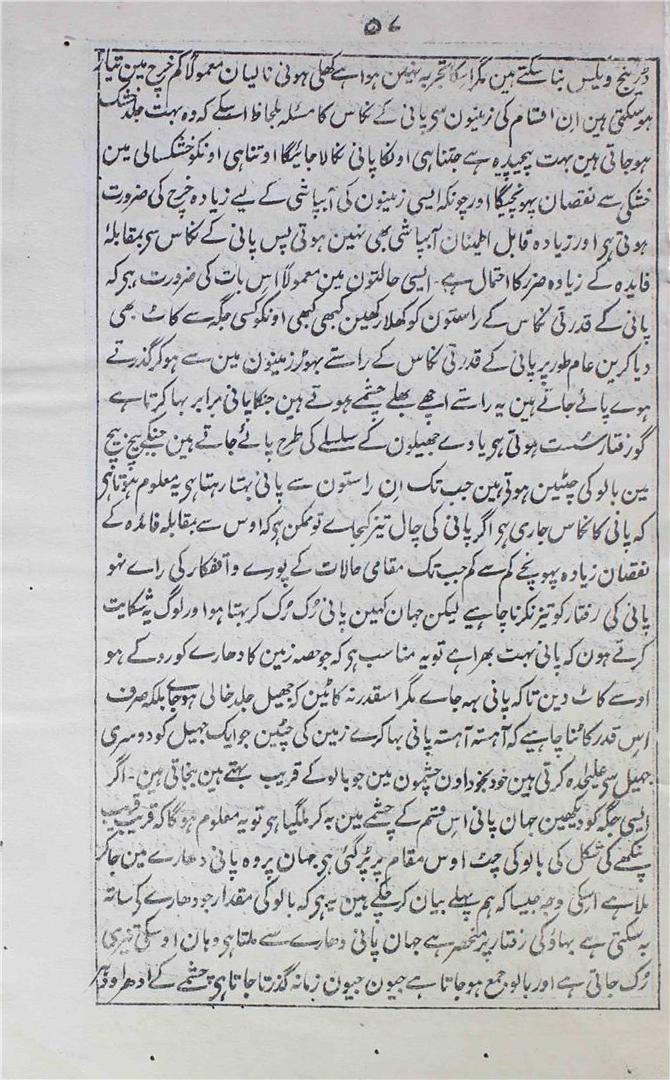 ۵۷
ڈرینج ویلس بنا سکتے ہین مگر اسکا تجربہ نہین ہوا ہے کھلی ہوئی نالیان معمولاً کم خرچ مین تیار
ہوسکتی ہین ان اقسام کی زمینون سی پانی کے نکاس کا مسئلہ بلحاظ اسکے کہ وہ بہت جلد خشک
ہوجاتی ہین بہت پیچیدہ ہے جتنا ہی اونکا پانی نکالا جائیگا اوتنا ہی اونکو خشکسالی مین
خشکی سے نقصان پہونچیگا اور چونکہ ایسی زمینون کی آبپاشی کے لیے زیادہ خرچ کی ضرورت
ہوتی ہی اور زیادہ قابل اطمینان آبپاشی بھی نہین ہوتی پس پانی کے نکاس سی بمقابلۂ
فایدہ کے زیادہ ضرر کا احتمال ہے۔ ایسی حالتون مین معمولاً اس بات کی ضرورت ہی کہ
پانی کے قدرتی نکاس کے راستون کو کھلا رکھین کبھی کبھی اونکو کسی جگہ سے کاٹ بھی
دیا کرین عام طور پر پانی کے قدرتی نکاس کے راستے بھوڑ زمینون مین سے ہوکر گذرتے
ہوے پائے جاتے ہین یہ راستے اچھے بھلے چشمے ہوتے ہین جنکا پانی برابر بہا کرتا ہے
گو رفتار سست ہوتی ہو یا وے جھیلون کے سلسلے کی طرح پائے جاتے ہین جنکے بیچ بیچ
مین بالو کی چٹین ہوتی ہین جب تک ان راستون سے پانی بہتا رہتا ہی یہ معلوم ہوتا ہی
کہ پانی کا نکاس جاری ہی اگر پانی کی چال تیز کیجاے تو ممکن ہی کہ اوس سے بمقابلہ فائدہ کے
نقصان زیادہ پہونچے کم سے کم جب تک مقامی حالات کے پورے واقفکار کی راے نہو
پانی کی رفتار کو تیز نکرنا چاہیے لیکن جہان کہین پانی رُک رُک کر بہتا ہو اور لوگ یہ شکایت
کرتے ہون کہ پانی بہت بھرا ہے تو یہ مناسب ہی کہ جو حصہ زمین کا دھارے کو روکے ہو
اوسے کاٹ دین تاکہ پانی بہہ جاے مگر اسقدر نہ کاٹین کہ جھیل جلد خالی ہوجاے بلکہ صرف
اس قدر کاٹنا چاہیے کہ آہستہ آہستہ پانی بہا کرے زمین کی چٹین جو ایک جھیل کو دوسری
جھیل سی علیحدہ کرتی ہین خود بخود اون چشمون مین جو بالو کے قریب بہتے ہین بنجاتی ہین۔ اگر
ایسی جگہ کو دیکھین جہان پانی اس قسم کے چشمے مین بہ کر ملگیا ہی تو یہ معلوم ہوگا کہ قریب قریب
پنکھے کی شکل کی بالو کی چٹ اوس مقام پر پڑ گئی ہی جہان پر وہ پانی دھارے مین جاکر
ملا ہے اسکی وجہ جیسا کہ ہم پہلے بیان کرچکے ہین یہ ہی کہ بالو کی مقدار جو دھارے کے ساتھ
بہ سکتی ہے بہاؤ کی رفتار پر منحصر ہے جہان پانی دھارے سے ملتا ہی وہان اوسکی تیزی
رُک جاتی ہے اور بالو جمع ہوجاتا ہے جیون جیون زمانہ گذرتا جاتا ہی چشمے کے ادھر اودھر